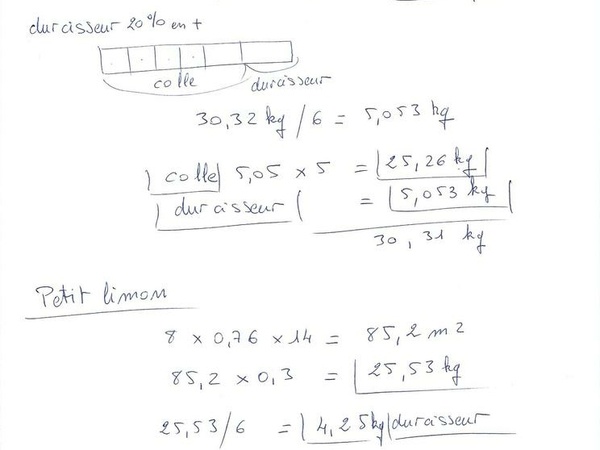 durcisseur 20% en +
colle durcisseur
30,32 kg / 6 = 5,053 kg
colle 5,05 x 5 = 25,26 kg
durcisseur = 5,053 kg
30,31 kg
Petit limon
8 x 0,76 x 14 = 85,2 m2
85,2 x 0,3 = 25,53 kg
25,53/6 = 4,25kg durcisseur